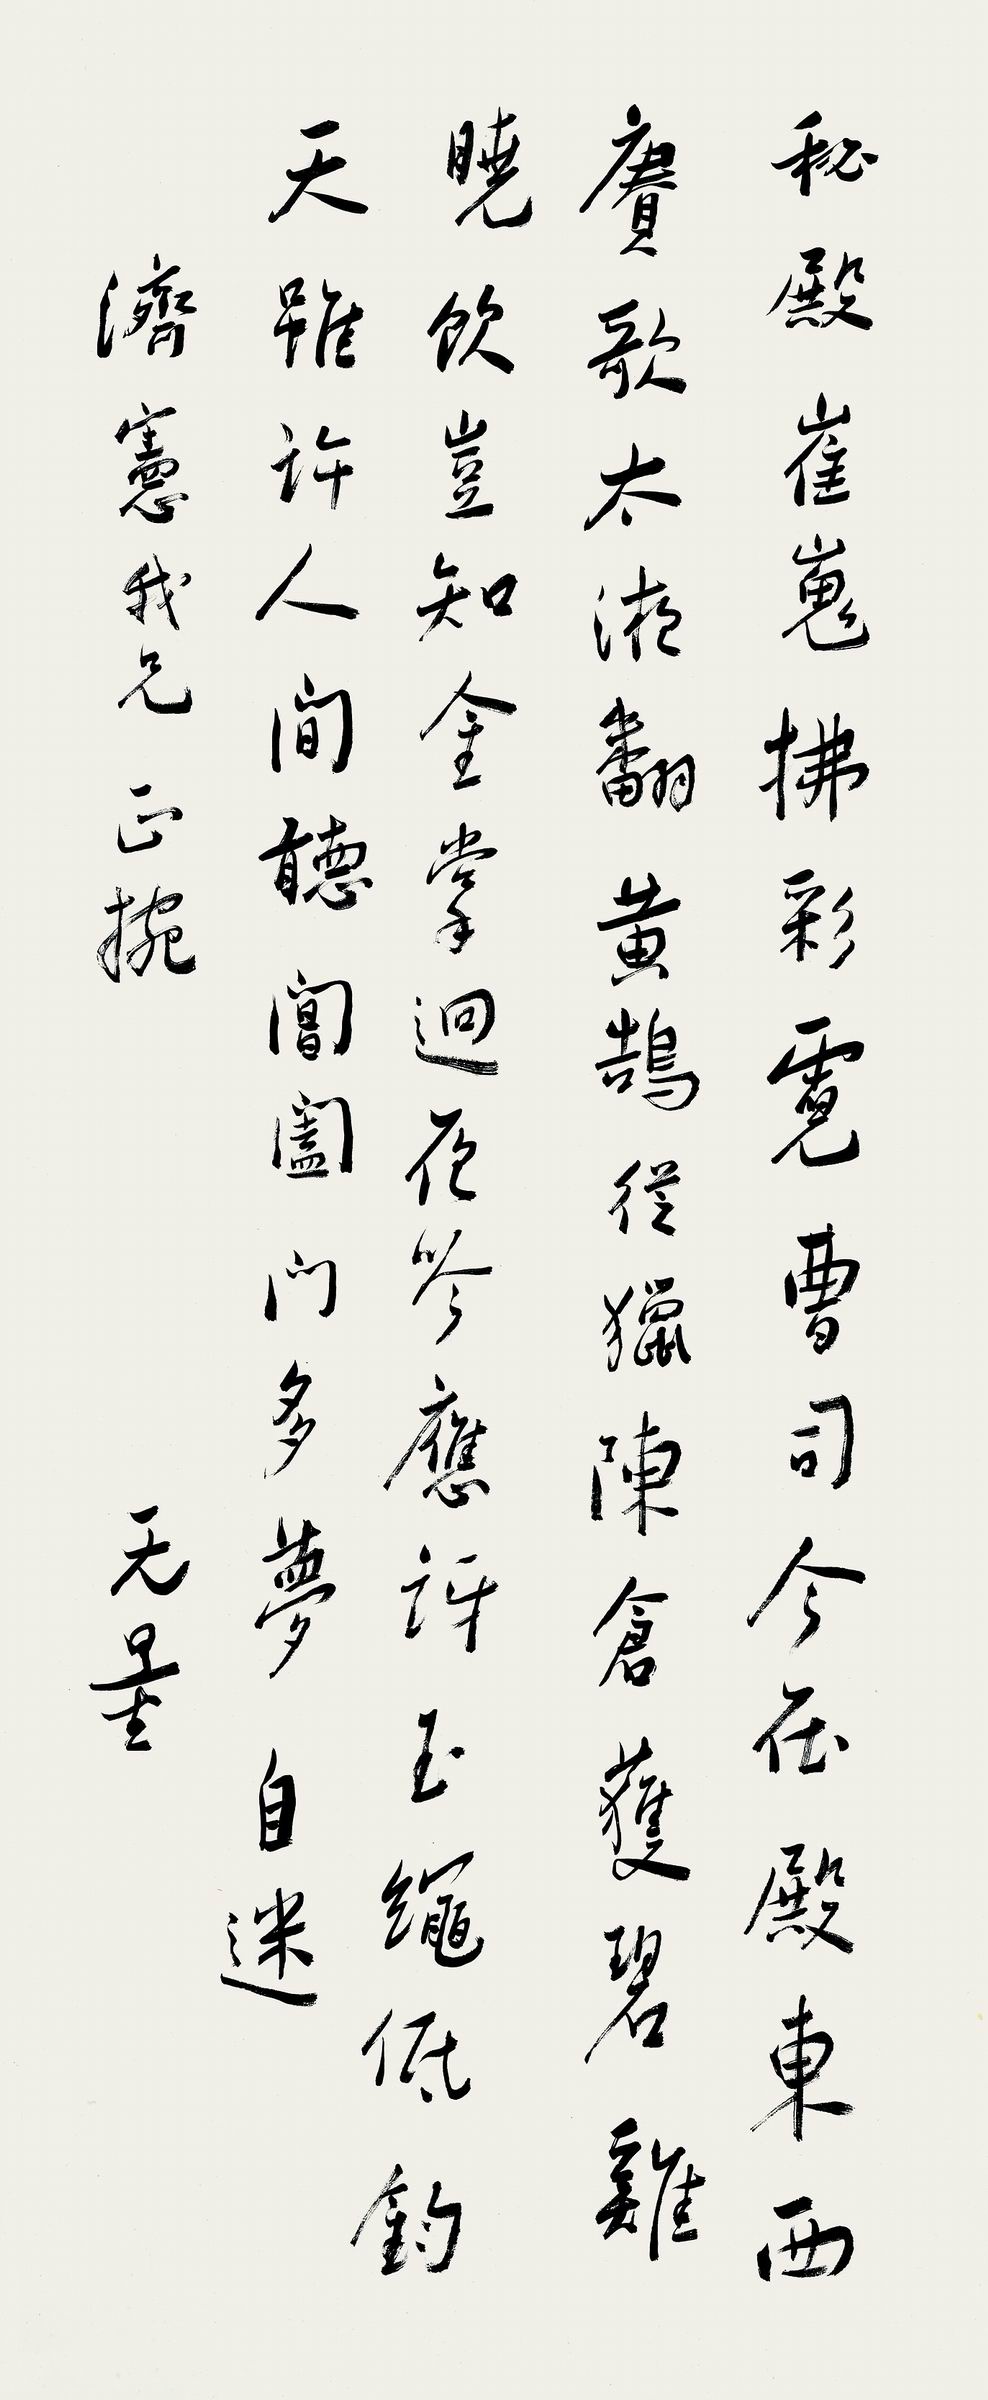 秘殿崔嵬拂彩霓曹司今在殿東西
賡歌太液翻黃鵠從獵陳倉獲碧雞
曉飲豈知金掌迥夜吟應訝玉繩低鈞
天雖許人間聽閶闔門多夢自迷
濟憲我兄正捥
无量